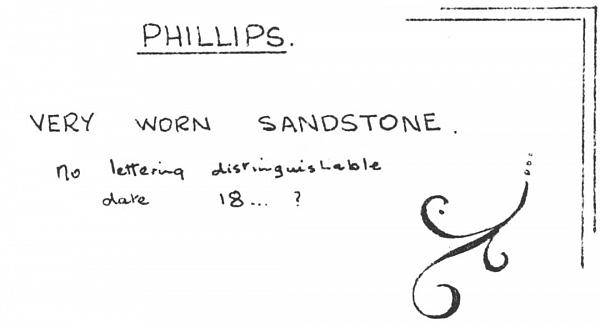 PHILLIPS.
VERY WORN SANDSTONE.
no lettering distinguishable
date 18... ?